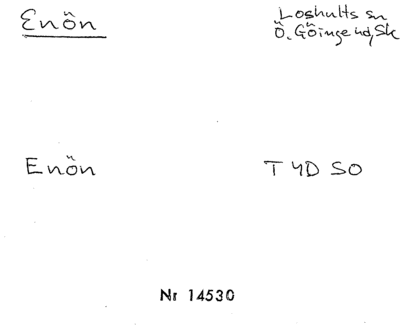 Enön
Loshults sn
Ö. Göinge hd, Sk
Enön
T 4D SO
Nr 14530